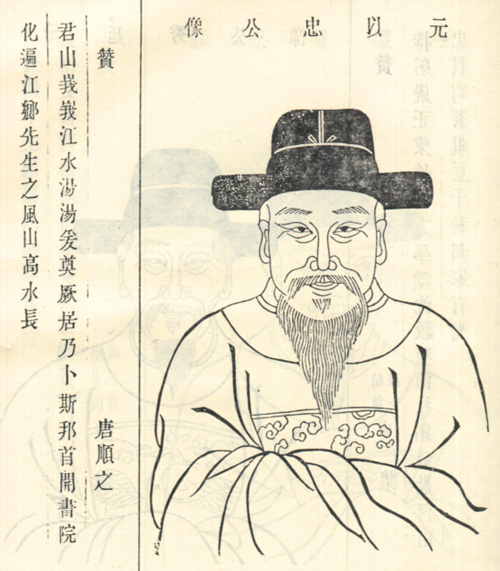 元以忠公像
贊 唐順之
君山峩峩江水湯湯爰奠厥居乃卜斯邦首開書院
化遍江鄉先生之風山高水長